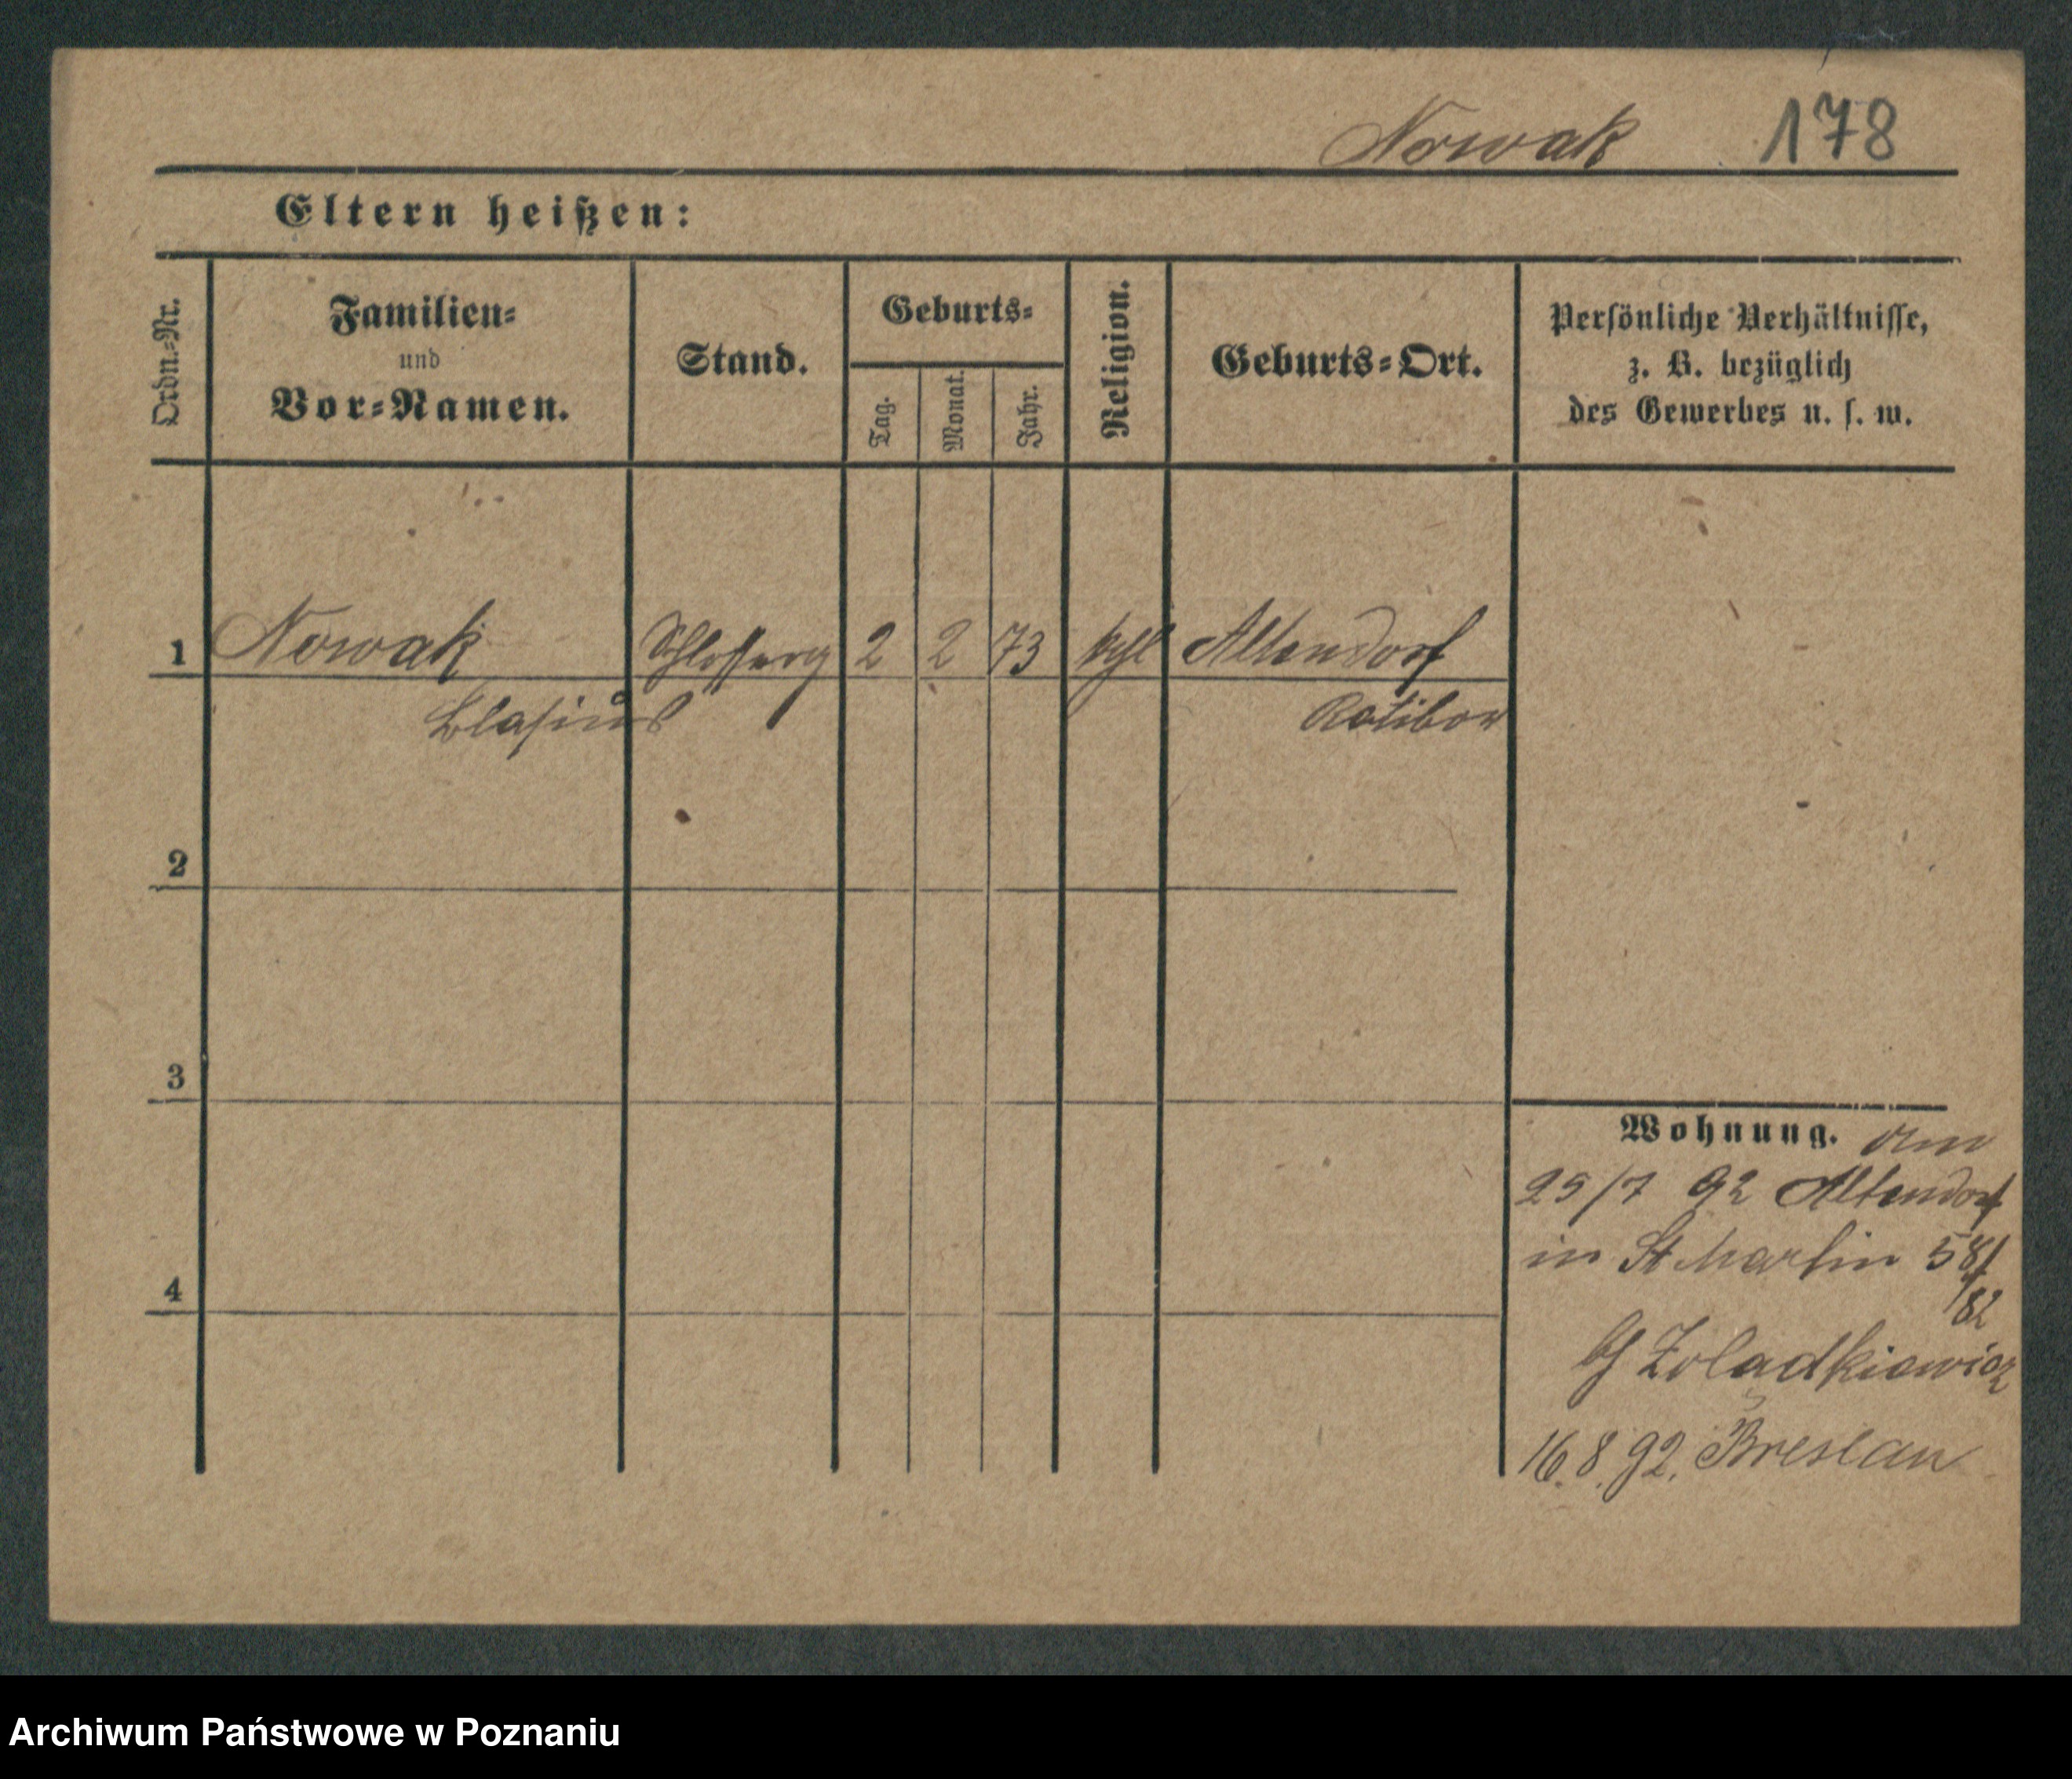 Nowak 178
Eltern heißen:
Ordn.-Nr.
Familien-
und
Vor-Namen.
Stand.
Geburts-
Tag.
Monat.
Jahr.
Religion.
Geburts-Ort.
Persönliche Verhältnisse,
z. B. bezüglich
des Gewerbes u. s. w.
1 Nowak 2 2 73 kthl Altendorf
Blasius Ratibor
2
3
4
Wohnung. am
25/7 92 Altendorf
in St Martin 58/
/82
b/ Zoladkiewicz
16.8.92. Breslau
Archiwum Państwowe w Poznaniu